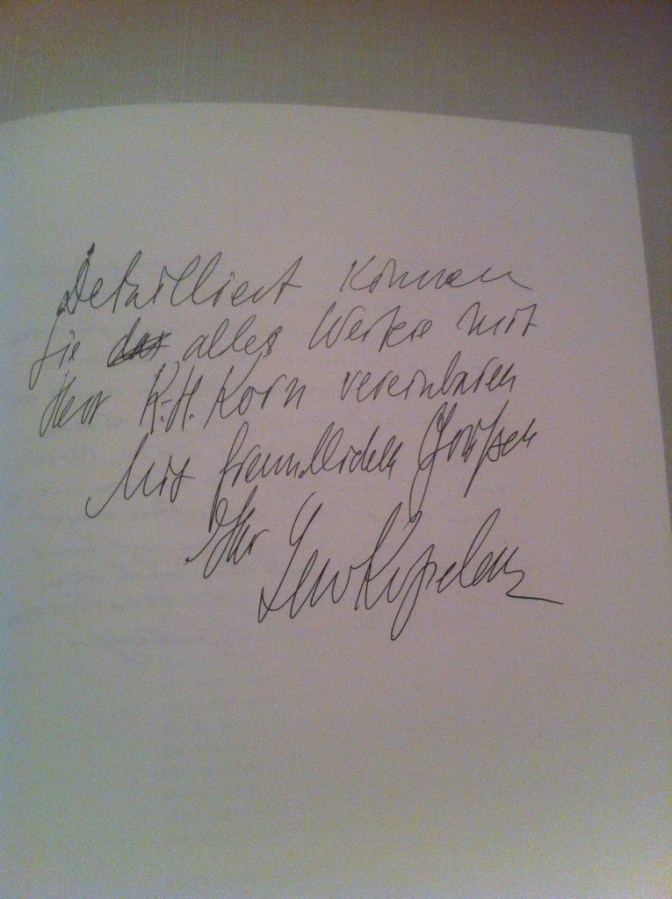 Detailliert können
Sie das alles Weitere mit
Herr K.-H. Korn vereinbaren
Mit freundlichen Grüßen
Ihr Lew Kopelew